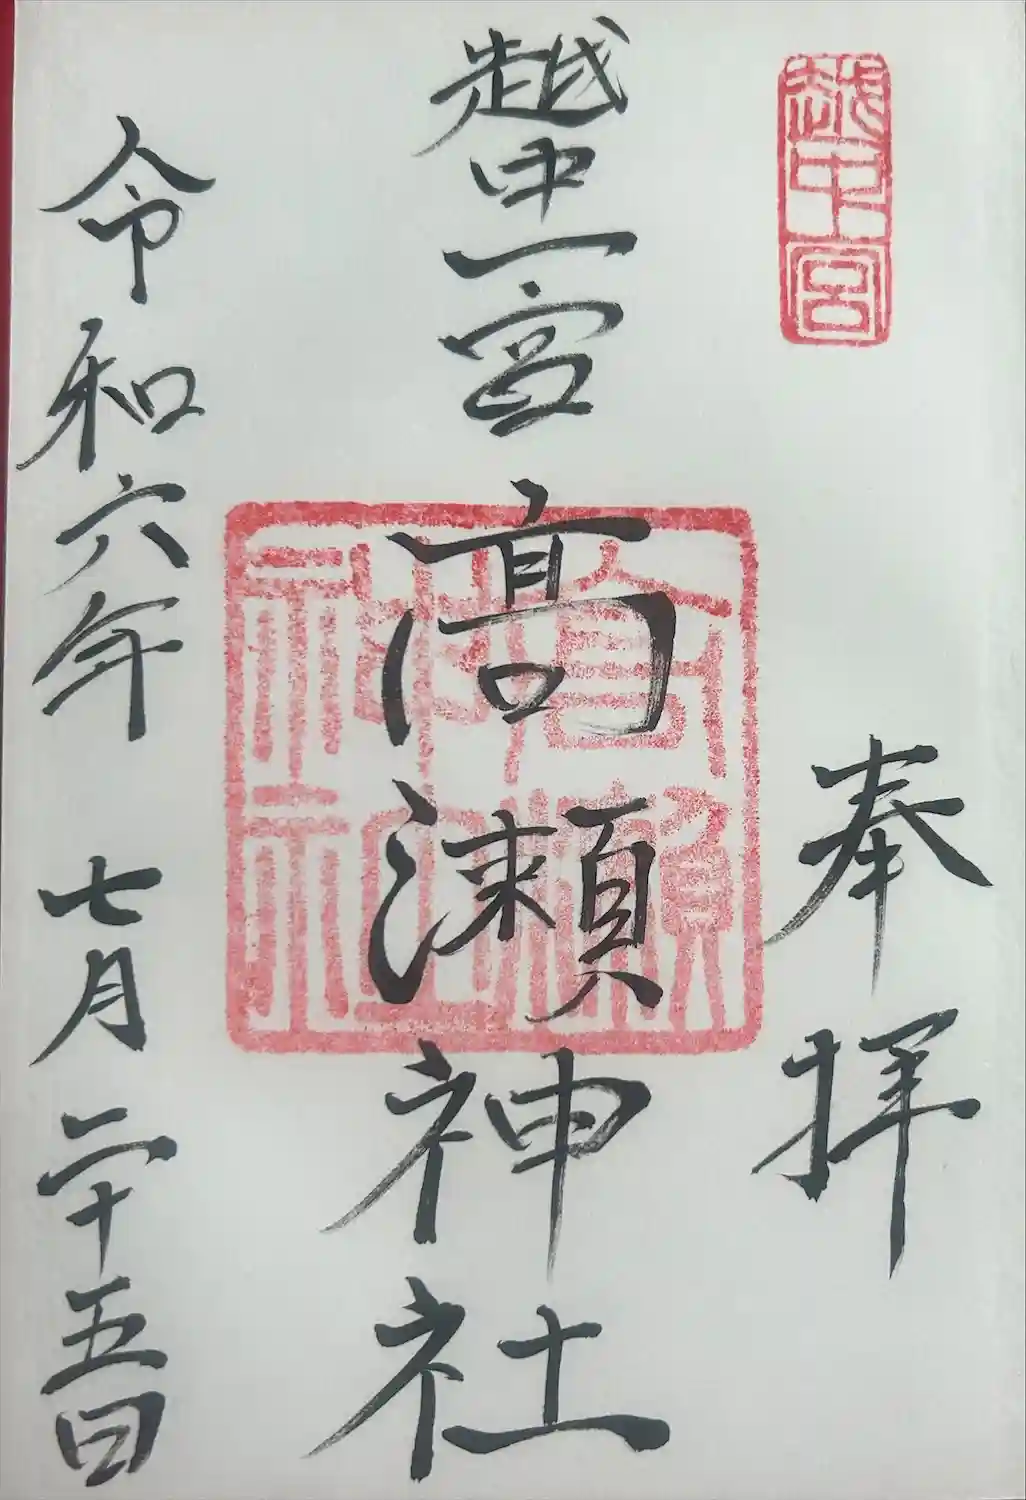 越中一宮
奉拝
越中一宮
高瀬神社
高瀬神社
令和六年 七月二十五日